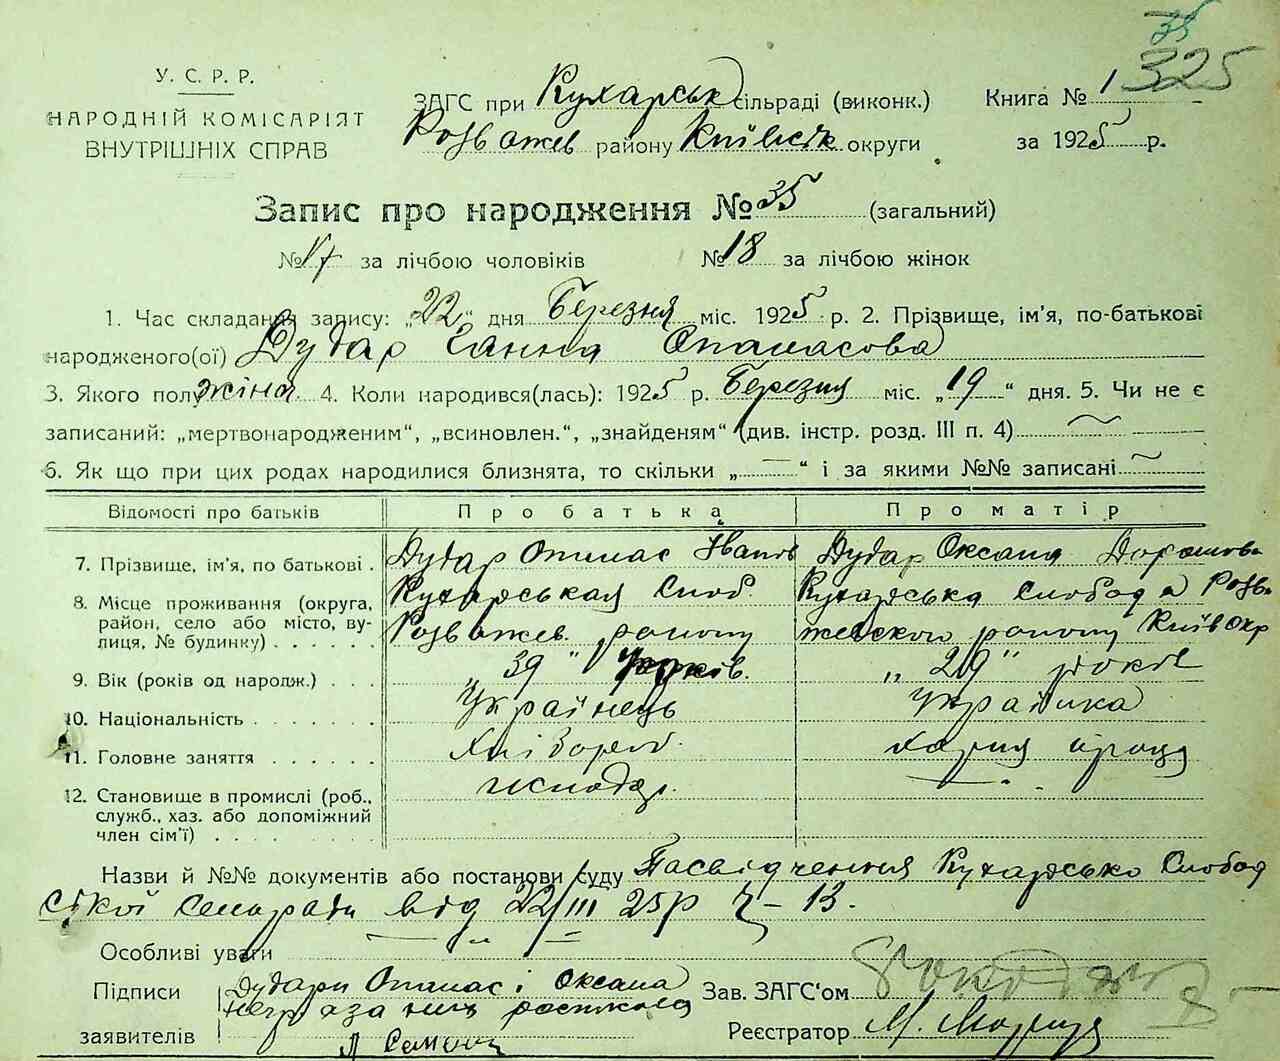 35
325
У. С. Р. Р.
НАРОДНІЙ КОМІСАРІЯТ
ВНУТРІШНІХ СПРАВ
ЗАГС при Кухарськ сільраді (виконк.)
Розважев району Київськ округи
Книга № 1
за 1925 р.
Запис про народження № 35 (загальний)
№ 17 за лічбою чоловіків № 18 за лічбою жінок
1. Час складання запису: „22“ дня Березня міс. 1925 р. 2. Прізвище, ім'я, по-батькові
народженого(ої) Дудар Ганна Опанасова
3. Якого полу жіноч. 4. Коли народився(лась): 1925 р. Березня міс. „19“ дня. 5. Чи не є
записаний: „мертвонародженим“, „всиновлен.“, „знайденям“ (див. інстр. розд. III п. 4)
6. Як що при цих родах народилися близнята, то скільки „—“ і за якими №№ записані
Відомості про батьків Про батька Про матір
7. Прізвище, ім'я, по батькові . Дудар Опанас Іванов Дудар Оксана Дорошова
8. Місце проживання (округа, Кухарськая Слоб. Кухарська Слобода Розва
район, село або місто, ву- Розважев. району жевского району Київ окр
лиця, № будинку) . . . . . .
9. Вік (років од народж.) . . . „39“ років. „29“ років
10. Національність . . . . . . . Українець Українка
11. Головне заняття . . . . . . Хліборoб. хатня праця
12. Становище в промислі (роб., господар.
служб., хаз. або допоміжний
член сім'ї) . . . . . . . .
Назви й №№ документів або постанови суду Посвідчення Кухарсько Слобод
ської сельради від 22/III 25р Ч – 13.
Особливі уваги
Підписи Дудари Опанас і Оксана Зав. ЗАГС'ом
заявителів негр. за них
Реєстратор М.